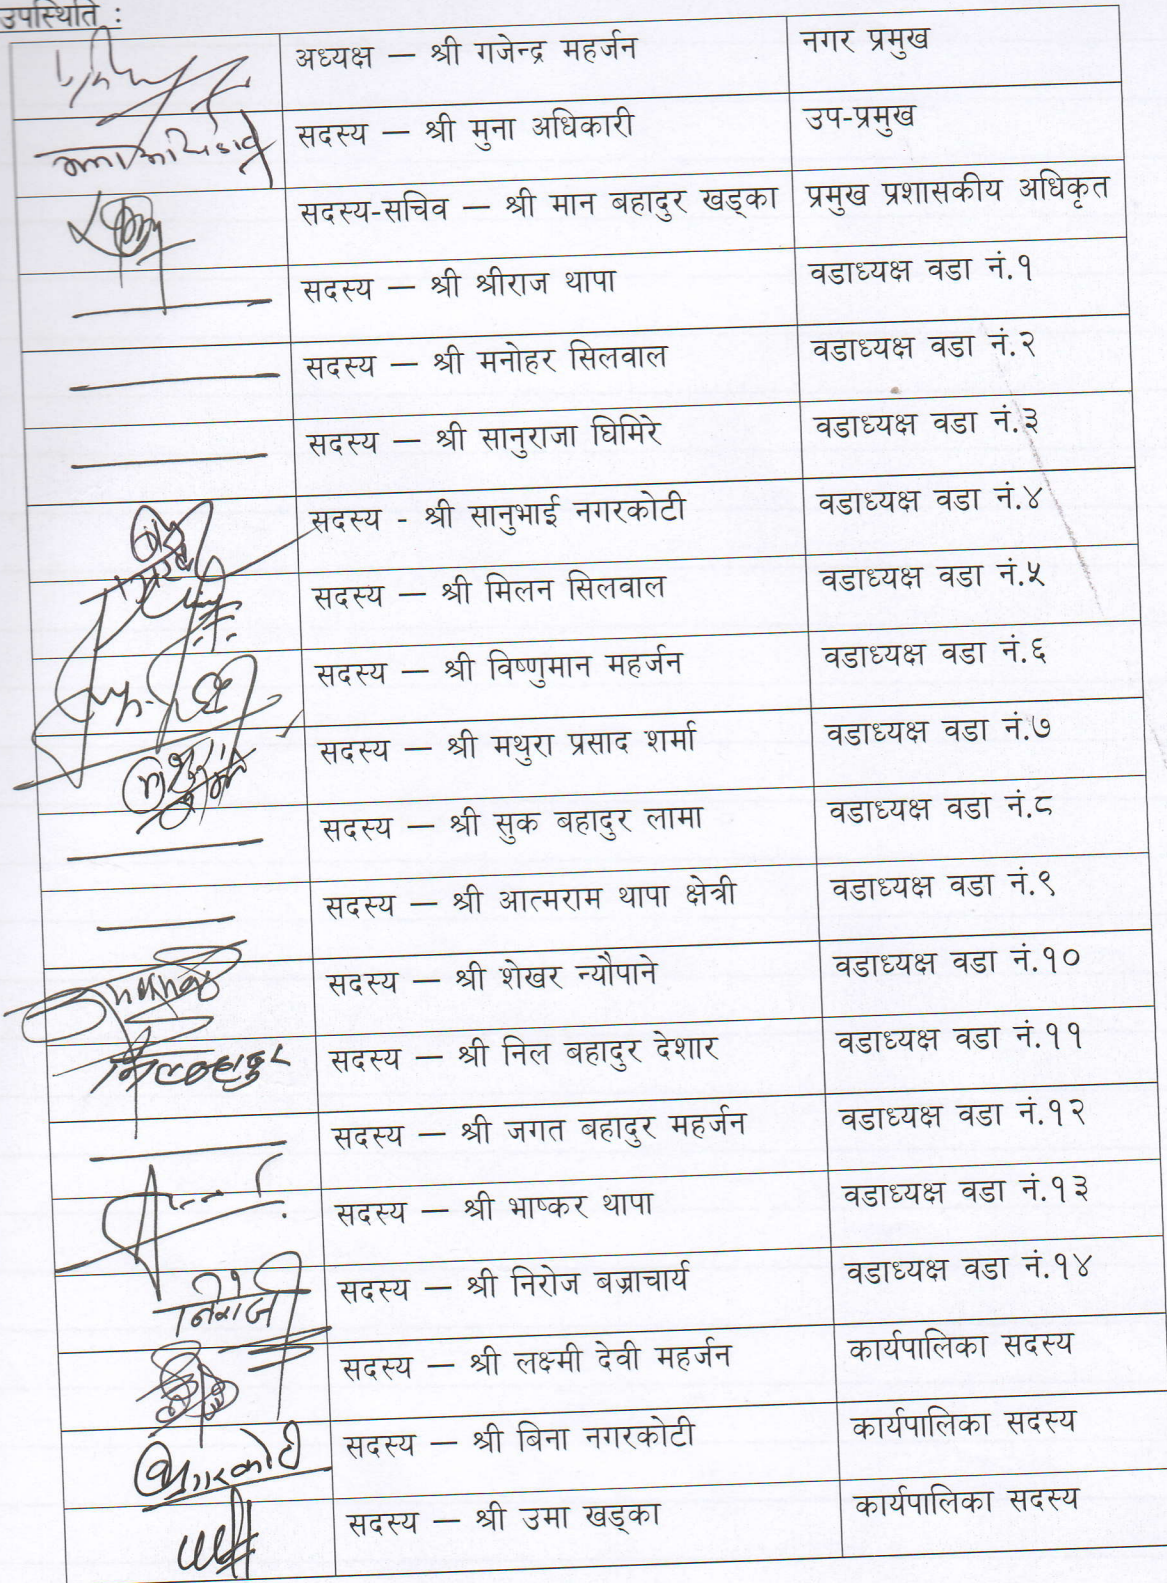 उपस्थिति :
अध्यक्ष — श्री गजेन्द्र महर्जन नगर प्रमुख
सदस्य — श्री मुना अधिकारी उप-प्रमुख
सदस्य-सचिव — श्री मान बहादुर खड्का प्रमुख प्रशासकीय अधिकृत
सदस्य — श्री श्रीराज थापा वडाध्यक्ष वडा नं.१
सदस्य — श्री मनोहर सिलवाल वडाध्यक्ष वडा नं.२
सदस्य — श्री सानुराजा घिमिरे वडाध्यक्ष वडा नं.३
सदस्य - श्री सानुभाई नगरकोटी वडाध्यक्ष वडा नं.४
सदस्य — श्री मिलन सिलवाल वडाध्यक्ष वडा नं.५
सदस्य — श्री विष्णुमान महर्जन वडाध्यक्ष वडा नं.६
सदस्य — श्री मथुरा प्रसाद शर्मा वडाध्यक्ष वडा नं.७
सदस्य — श्री सुक बहादुर लामा वडाध्यक्ष वडा नं.८
सदस्य — श्री आत्मराम थापा क्षेत्री वडाध्यक्ष वडा नं.९
सदस्य — श्री शेखर न्यौपाने वडाध्यक्ष वडा नं.१०
निलबहादुर सदस्य — श्री निल बहादुर देशार वडाध्यक्ष वडा नं.११
सदस्य — श्री जगत बहादुर महर्जन वडाध्यक्ष वडा नं.१२
सदस्य — श्री भाष्कर थापा वडाध्यक्ष वडा नं.१३
निरोज सदस्य — श्री निरोज बज्राचार्य वडाध्यक्ष वडा नं.१४
सदस्य — श्री लक्ष्मी देवी महर्जन कार्यपालिका सदस्य
सदस्य — श्री बिना नगरकोटी कार्यपालिका सदस्य
सदस्य — श्री उमा खड्का कार्यपालिका सदस्य